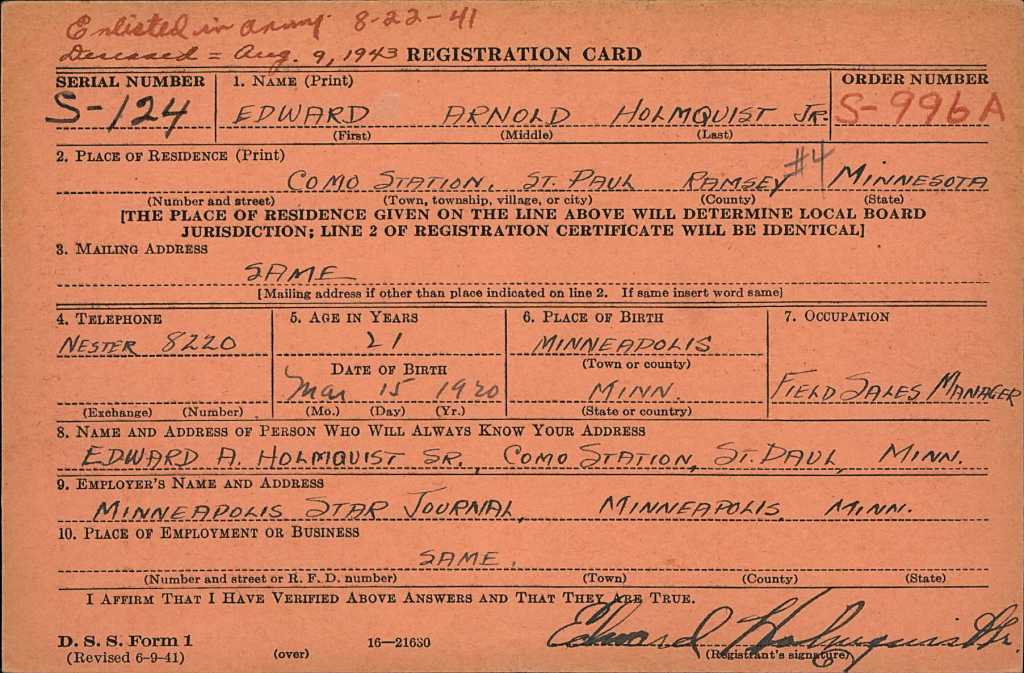 Enlisted in Army. 8-22-41
Deceased = Aug. 9, 1943 REGISTRATION CARD
SERIAL NUMBER 1. NAME (Print) ORDER NUMBER
S-124 EDWARD ARNOLD HOLMQUIST JR. S-996A
(First) (Middle) (Last)
2. PLACE OF RESIDENCE (Print)
COMO STATION, ST. PAUL RAMSEY #4 MINNESOTA
(Number and street) (Town, township, village, or city) (County) (State)
[THE PLACE OF RESIDENCE GIVEN ON THE LINE ABOVE WILL DETERMINE LOCAL BOARD
JURISDICTION; LINE 2 OF REGISTRATION CERTIFICATE WILL BE IDENTICAL]
3. MAILING ADDRESS
SAME
[Mailing address if other than place indicated on line 2. If same insert word same]
4. TELEPHONE 5. AGE IN YEARS 6. PLACE OF BIRTH 7. OCCUPATION
NESTER 8220 21 MINNEAPOLIS
DATE OF BIRTH (Town or county)
Mar 15 1920 MINN. FIELD SALES MANAGER
(Exchange) (Number) (Mo.) (Day) (Yr.) (State or country)
8. NAME AND ADDRESS OF PERSON WHO WILL ALWAYS KNOW YOUR ADDRESS
EDWARD A. HOLMQUIST SR., COMO STATION, ST. PAUL, MINN.
9. EMPLOYER'S NAME AND ADDRESS
MINNEAPOLIS STAR JOURNAL, MINNEAPOLIS, MINN.
10. PLACE OF EMPLOYMENT OR BUSINESS
SAME.
(Number and street or R. F. D. number) (Town) (County) (State)
I AFFIRM THAT I HAVE VERIFIED ABOVE ANSWERS AND THAT THEY ARE TRUE.
Edward Holmquist Jr.
D. S. S. Form 1 16—21630
(Revised 6-9-41) (over) (Registrant's signature)